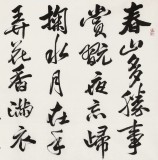 春山多勝事
賞翫夜忘歸
掬水月在手
弄花香滿衣